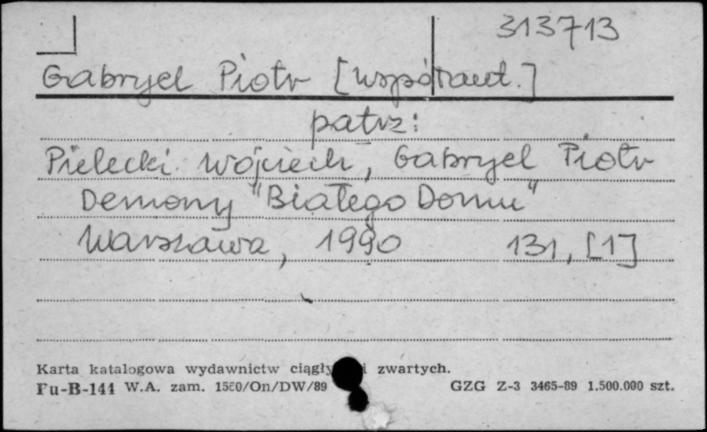 313713
Gabryel Piotr [współaut.]
patrz:
Pielecki Wojciech, Gabryel Piotr
Demony "Białego Domu"
Warszawa, 1990 131, [1]
Karta katalogowa wydawnictw zwartych.
Fu-B-141 W.A. zam. 1580/On/DW/89 GZG Z-3 3465-89 1.500.000 szt.